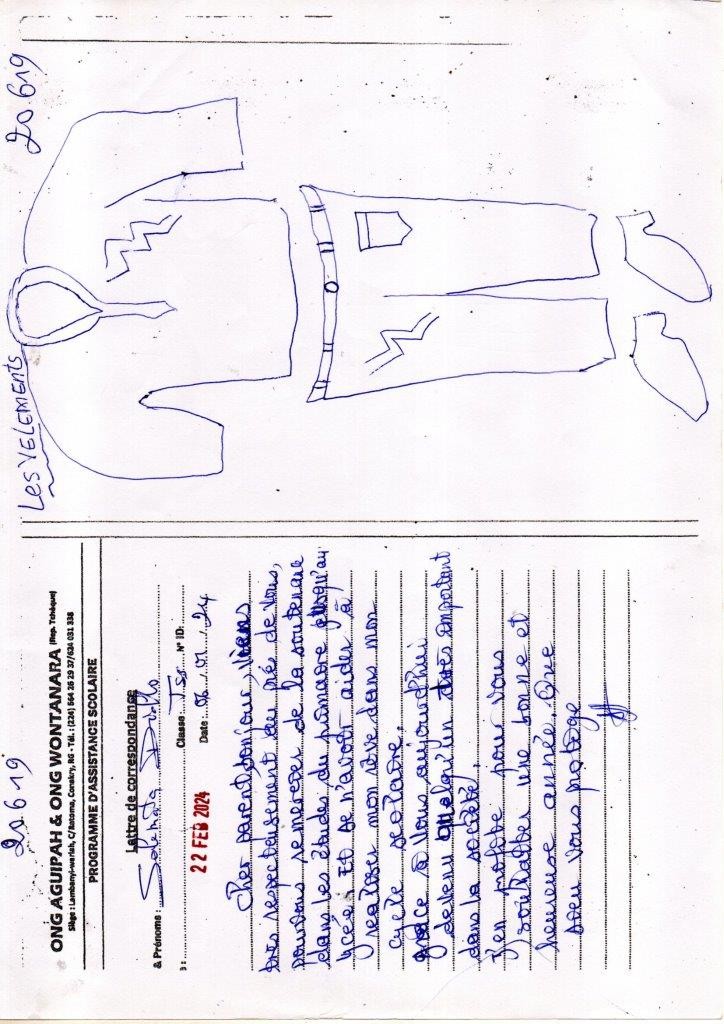 20619
ONG AGUIPAH & ONG WONTANARA (Rep. Tchèque)
Siège : Lambanyi-wariah, C/Ratoma, Conakry, RG - Tél. : (224) 664 26 29 37/634 031 338
PROGRAMME D'ASSISTANCE SCOLAIRE
Lettre de correspondance
& Prénoms : Diallo
Classe : TSS N° ID:
Date : 06/01/24
22 FEB 2024
Cher parent, bonjour, viens
très respectueusement au près de vous,
pour vous remercier de la soutenance
dans les études du primaire jusqu'au
lycée. Et de m'avoir aider à
réaliser mon rêve dans mon
cycle scolaire.
grace à vous aujourd'hui
devenu quelqu'un très important
dans la société.
J'en profite pour vous
souhaiter une bonne et
heureuse année. Que
Dieu vous protège
Les VETEMENTS
20619